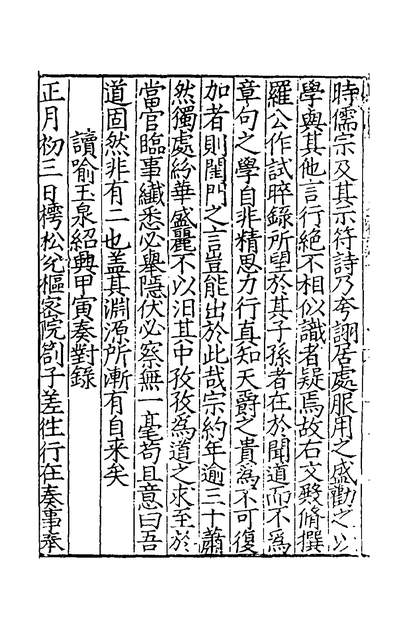 時儒宗及其示符詩乃夸詡居處服用之盛勸之以
學與其他言行絶不相似識者疑焉故右文殿脩撰
羅公作試晬錄所望於其子孫者在於聞道而不為
章句之學自非精思力行真知天爵之貴為不可復
加者則閨門之言豈能出於此哉宗約年逾三十蕭
然獨處紛華盛麗不以汨其中孜孜為道之求至於
當官臨事纖悉必舉隱伏必察無一毫苟且意曰吾
道固然非有二也盖其淵源所漸有自来矣
讀喻玉泉紹興甲寅奏對錄
正月初三日樗松允樞密院劄子差往行在奏事奉